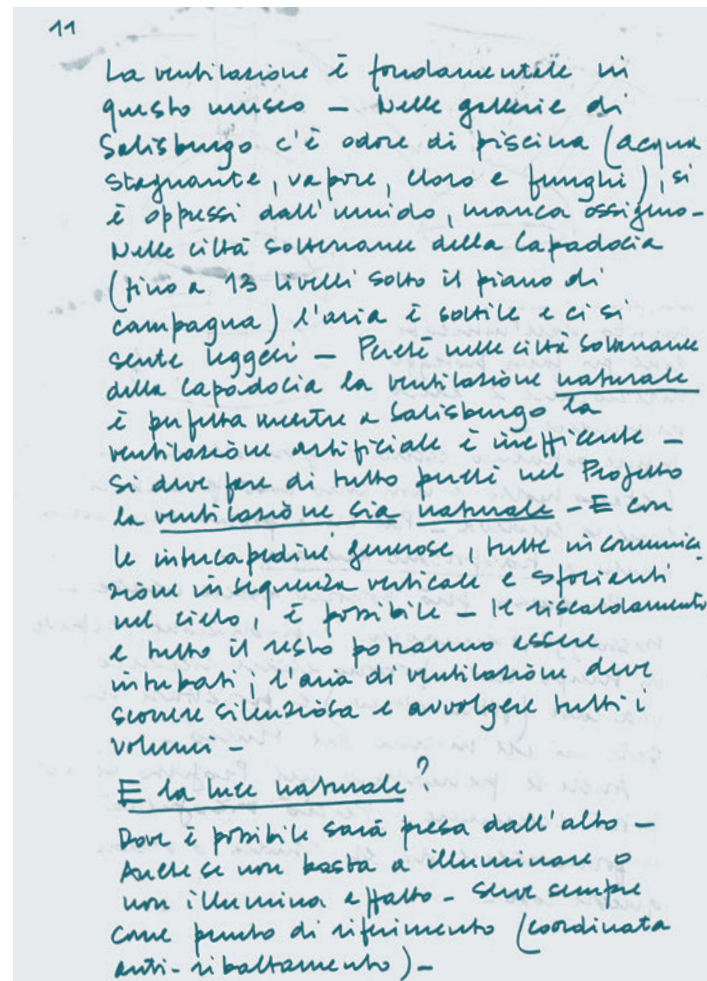 11
La ventilazione è fondamentale in
questo museo – Nelle gallerie di
Salisburgo c'è odore di piscina (acqua
stagnante, vapore, cloro e funghi), si
è oppressi dall'umido, manca ossigeno –
Nelle città sotterranee della Capadocia
(fino a 13 livelli sotto il piano di
campagna) l'aria è sottile e ci si
sente leggeri – Perché nelle città sotterranee
della Capadocia la ventilazione naturale
è perfetta mentre a Salisburgo la
ventilazione artificiale è inefficente –
Si deve fare di tutto perché nel Progetto
la ventilazione sia naturale – E con
le intercapedini generose, tutte in comunica
zione in sequenza verticale e sfocianti
nel cielo, è possibile – Il riscaldamento
e tutto il resto potranno essere
intubati; l'aria di ventilazione deve
scorrere silenziosa e avvolgere tutti i
volumi –
E la luce naturale?
Dove è possibile sarà presa dall'alto –
Anche se non basta a illuminare o
non illumina affatto – serve sempre
come punto di riferimento (coordinata
anti-ribaltamento) –